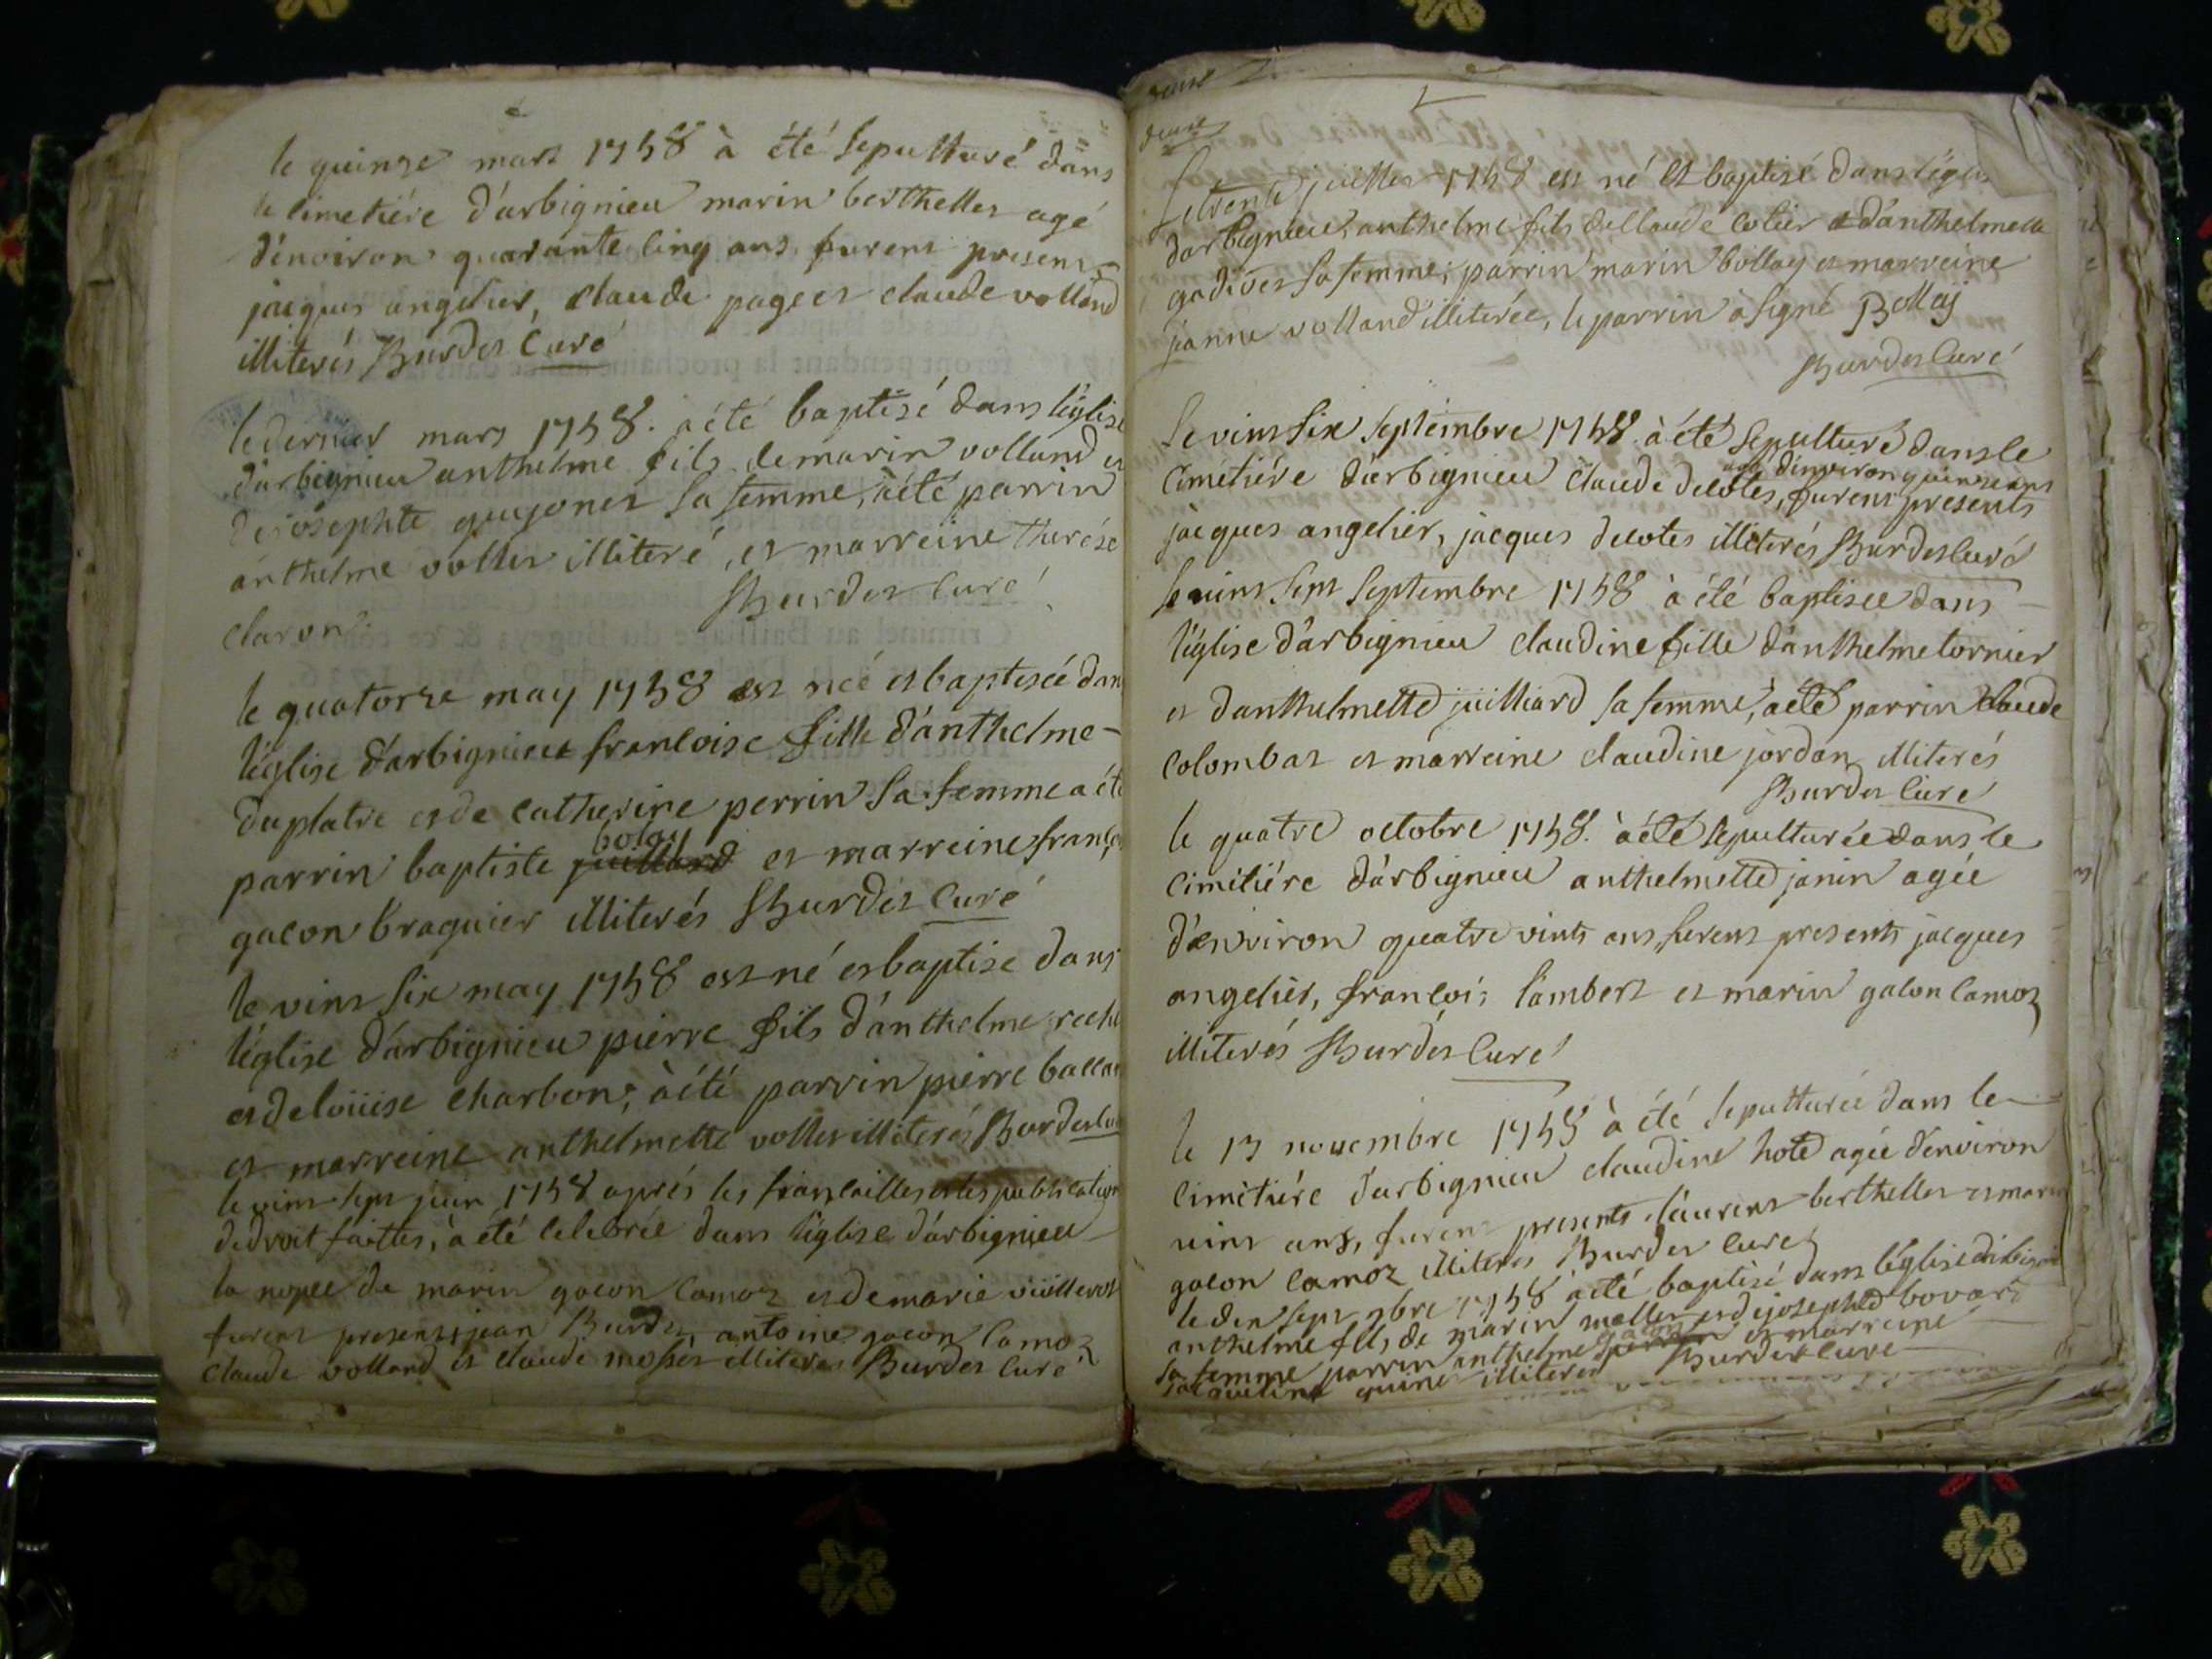 le quinze mars 1758 à été sepulturé dans
le cimetiére d'arbignieu marin berthellet agé
d'environ quarante cinq ans furent presens
jacques angelier, claude paget et claude volland
illiterés Burdet Curé
le dernier mars 1758. a été baptisé dans l'église
d'arbignieu anthelme fils de marin volland et
de josephte guyonet sa femme, à été parrin
anthelme vollet illiteré, et marreine therése
claron. Burdet curé
le quatorze may 1758 est née et baptisée dans
l'église d'arbignieu francoise fille d'anthelme
duplatre et de catherine perrin sa femme a été
boloy
parrin baptiste juilliard et marreine françoise
gacon braguier illiterés Burdet Curé
le vint six may 1758 est né et baptise dans
l'église d'arbignieu pierre fils d'anthelme
et de loüise charbon, à été parrin pierre
et marreine anthelmette vollet illiterés Burdet curé
le vint sept juin 1758 après les fiançailles et les publications
de droit faites, à été celebrée dans l'église d'arbignieu
la nopce de marin gacon camoz et de marie
furent presents jean Burdet, antoine gacon camoz
claude volland et claude mosset illiterés Burdet curé
Le trente juillet 1758 est né et baptisé dans l'église
d'arbignieu, anthelme fils de claude cotier et d'anthelmette
gadivet sa femme; parrin marin bollay et marreine
janne volland illiterée, le parrin à signé Bollaj
Burdet Curé
Le vint six septembre 1758. à été sepulturé dans le
agé d'environ quinze ans
cimétiére d'arbignieu claude decotes, furent presents
jacques angelier, jacques decotes illiterés Burdet curé
le vint sept septembre 1758 à été baptisée dans
l'église d'arbignieu claudine fille d'anthelme tornier
et d'anthelmette juilliard sa femme, à été parrin claude
colombat et marreine claudine jordan illiterés
Burdet Curé
le quatre octobre 1758. à été sepulturée dans le
cimitiére d'arbignieu anthelmette janin agée
d'environ quatre vints ans, furent presents jacques
angelier, françois lambert et marin gacon camoz
illiterés Burdet Curé
le 13 novembre 1758 à été sepulturée dans le
cimetiére d'arbignieu claudine hote agée d'environ
vint ans, furent presents laurent berthellet et marin
gacon camoz illiterés Burdet Curé
le dix sept 9bre 1758 à été baptisé dans l'église d'arbignieu
anthelme fils de marin mollet et de josephte bovard
gacon
sa femme parrin anthelme et marreine
jacqueline guine illiterés Burdet curé